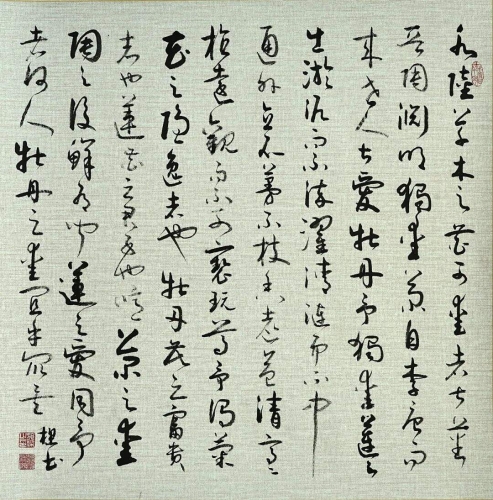 水陸草木之花可愛者甚蕃
晉陶淵明獨愛菊自李唐
來世人甚愛牡丹予獨愛蓮之
出淤泥而不染濯清漣而不中
通外直不蔓不枝香遠益清亭亭
植遠觀而不可褻玩焉予謂菊
花之隱逸者也牡丹花之富貴
者也蓮花之君子也噫菊之愛
陶之後鮮有聞蓮之愛同予
者何人牡丹之愛宜乎眾矣
書